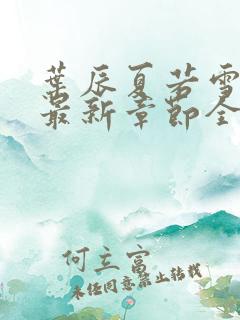 葉辰夏若雪
最新章節全
何立富
未经同意禁止转载